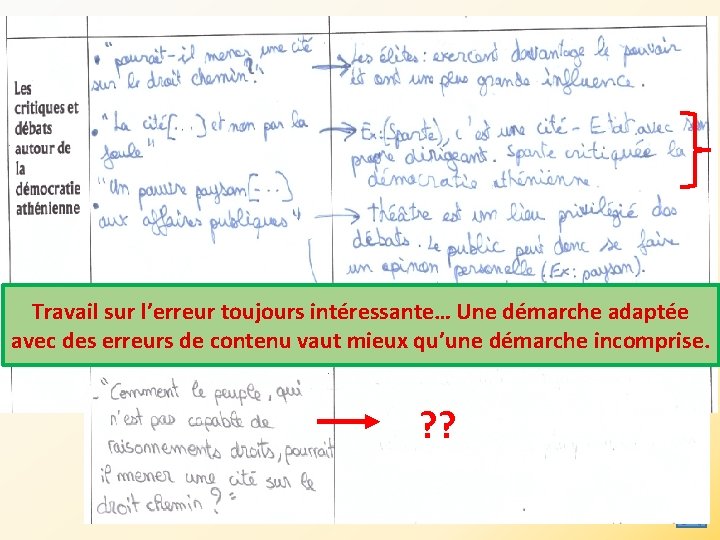 Les
critiques et
débats
autour de
la
démocratie
athénienne
• "pourait-il mener une cité
sur le droit chemin?"
• "La cité[...] et non par la
foule"
"Un pauvre paysan [...]
• aux affaires publiques"
→ Les élites: exercent davantage le pouvoir
et ont une plus grande influence.
→ Ex: (Sparte), c'est une cité-Etat avec son
propre dirigeant. Sparte critiquée la
démocratie athénienne.
→ théâtre est un lieu privilégié dos
débats. Le public peut donc se faire
un opinon personelle (Ex: paysan).
Travail sur l'erreur toujours intéressante… Une démarche adaptée
avec des erreurs de contenu vaut mieux qu'une démarche incomprise.
- "Comment le peuple, qui
n'est pas capable de
raisonnements droits, pourrait
il mener une cité sur le
droit chemin?"
? ?